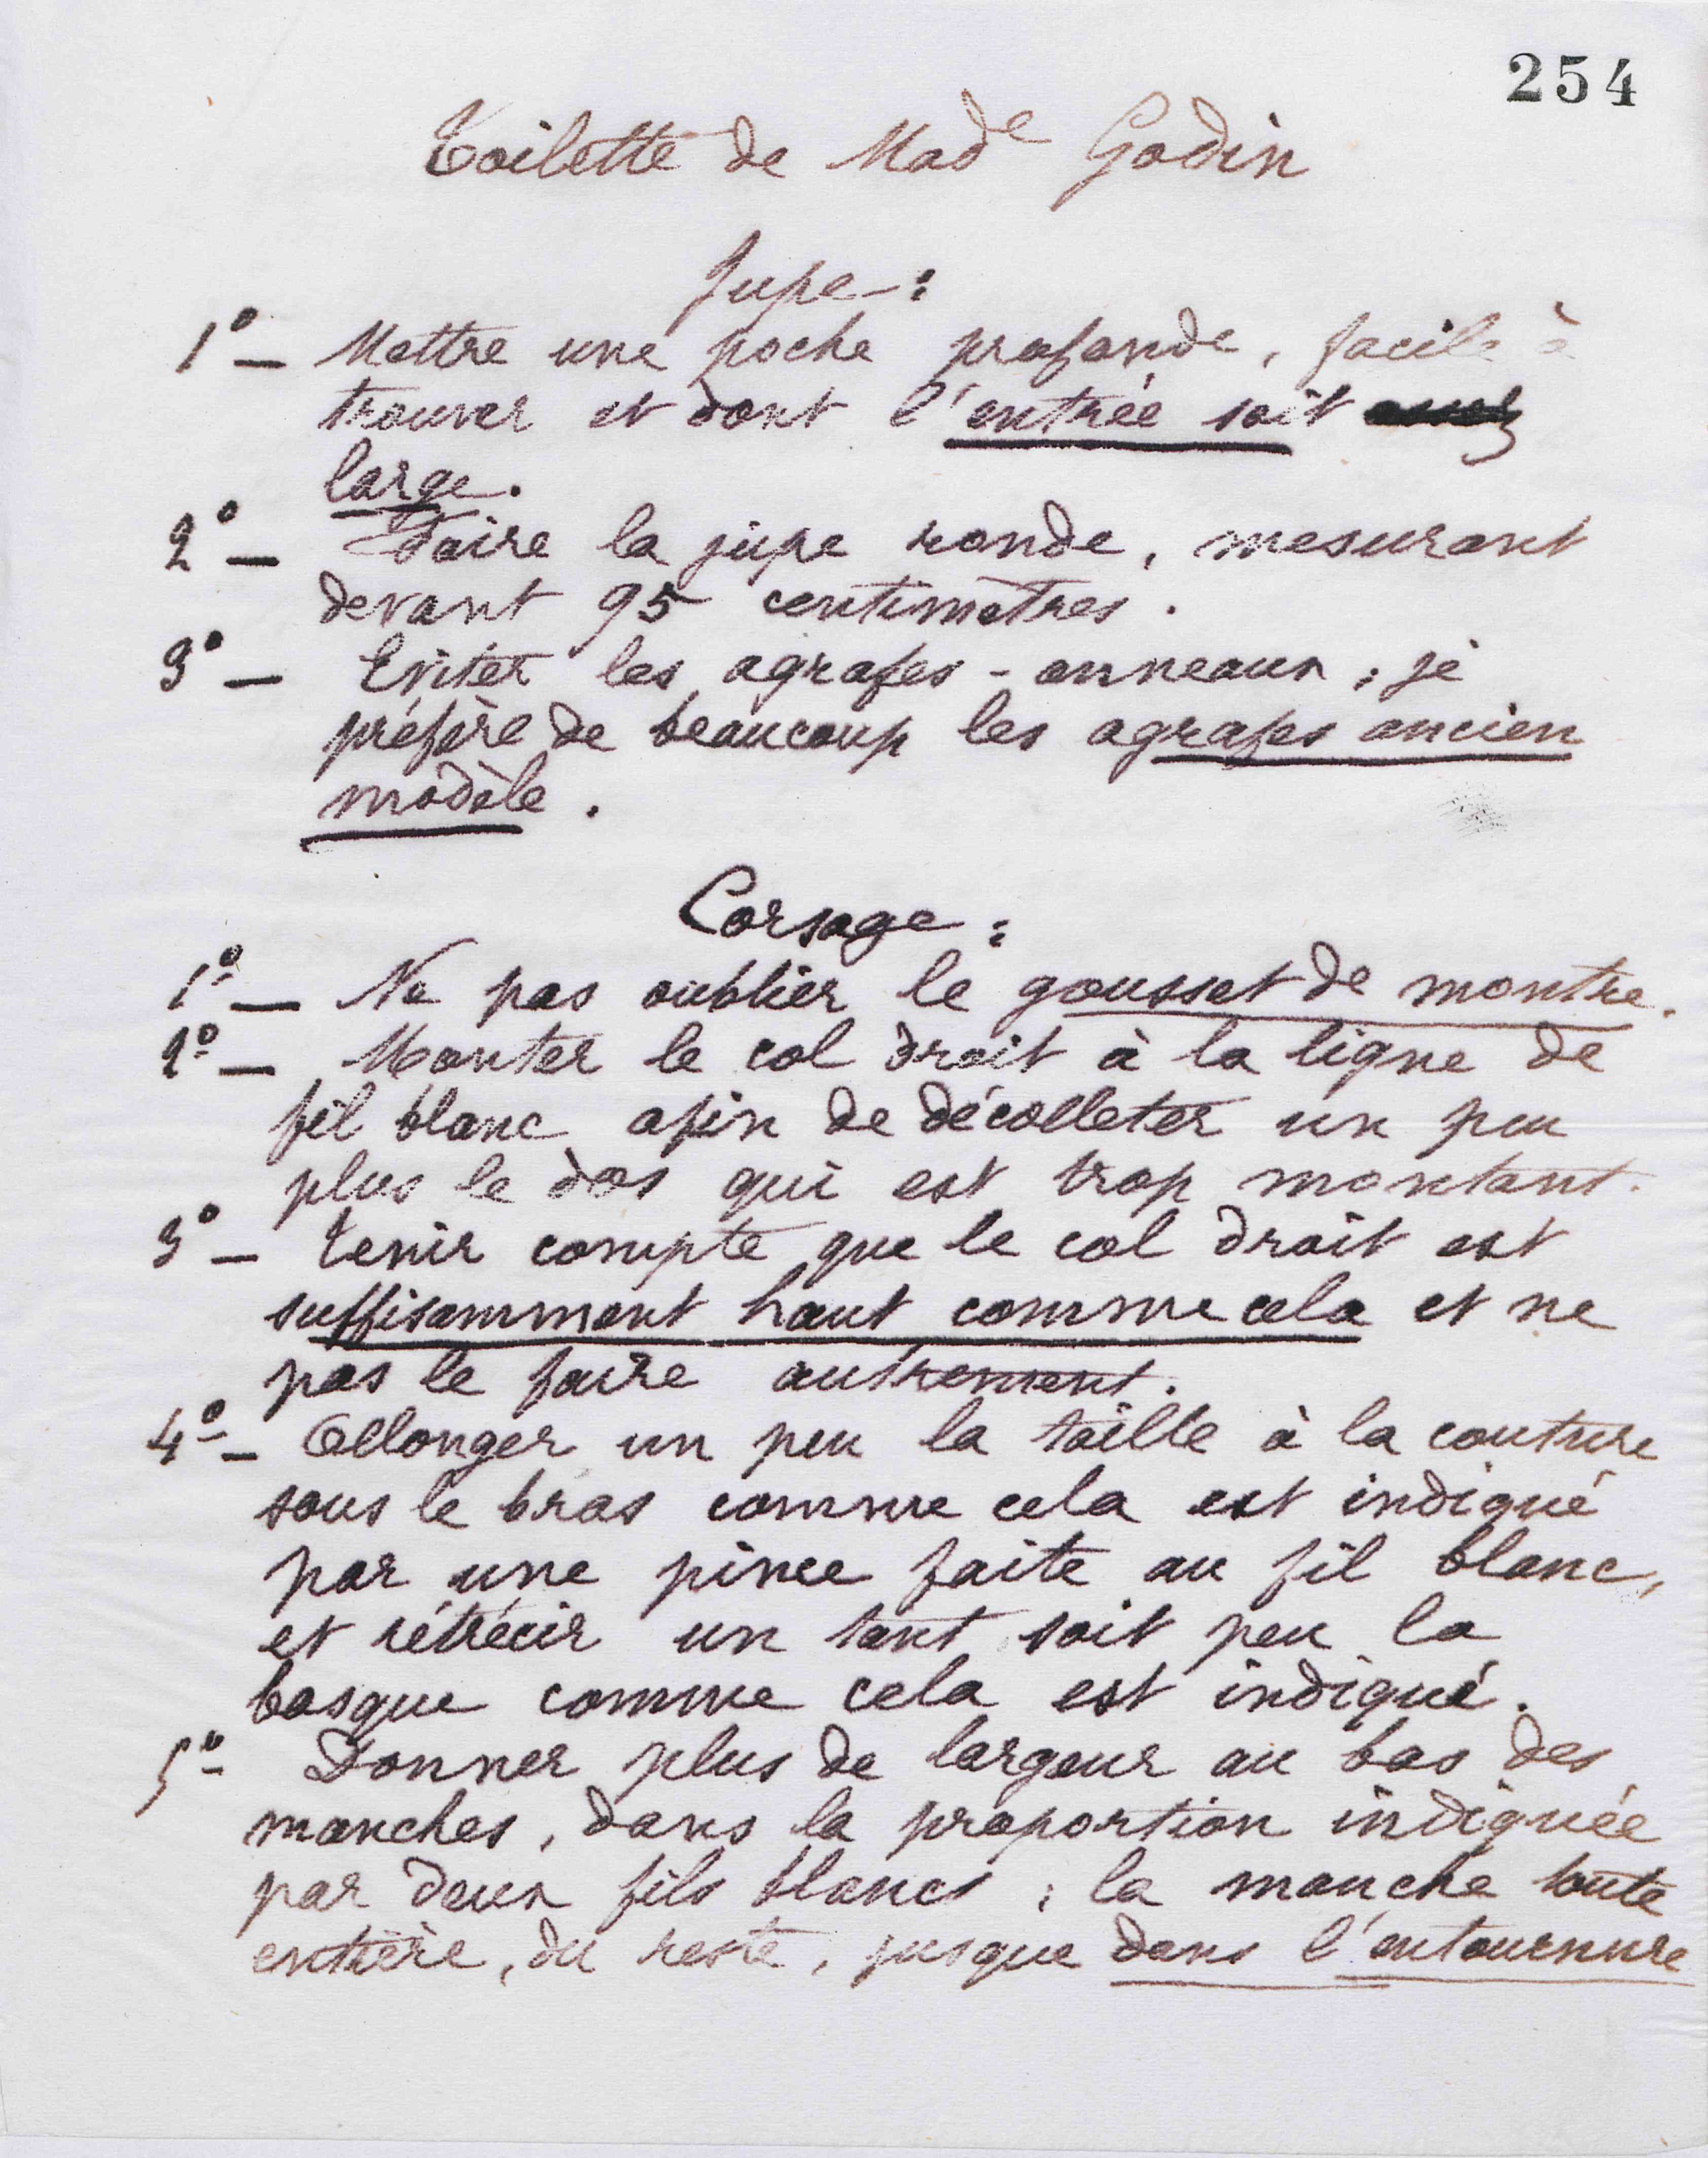 254
Toilette de Made Godin
Jupe :
1º — Mettre une poche profonde, facile à
trouver et dont l'entrée soit
large.
2º — Faire la jupe ronde, mesurant
devant 95 centimètres.
3º — Eviter les agrafes-anneaux ; je
préfère de beaucoup les agrafes ancien
modèle.
Corsage :
1º — Ne pas oublier le gousset de montre.
2º — Monter le col droit à la ligne de
fil blanc afin de décolleter un peu
plus le dos qui est trop montant.
3º — Tenir compte que le col droit est
suffisamment haut comme cela et ne
pas le faire autrement.
4º — Allonger un peu la taille à la couture
sous le bras comme cela est indiqué
par une pince faite au fil blanc,
et rétrécir un tant soit peu la
basque comme cela est indiqué.
5º — Donner plus de largeur au bas des
manches, dans la proportion indiquée
par deux fils blancs ; la manche toute
entière, du reste, jusque dans l'entournure